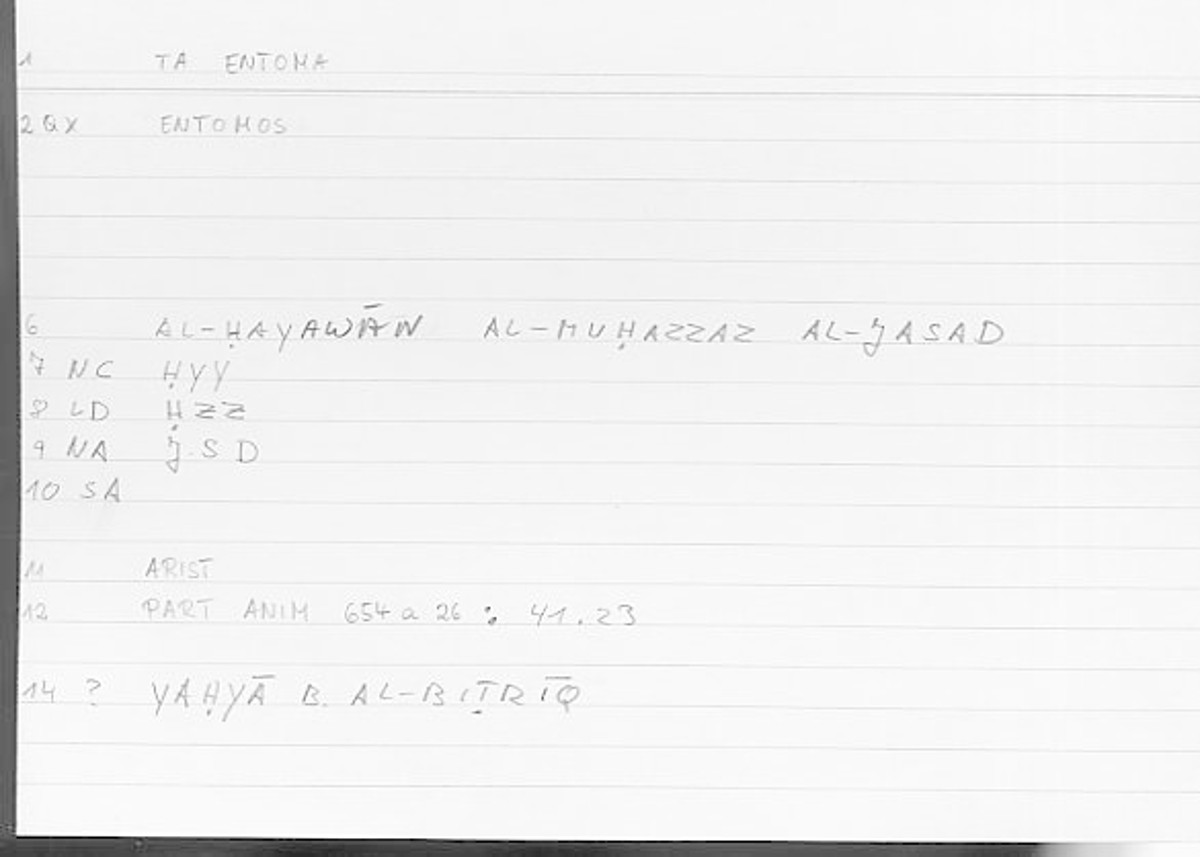 1 TA ENTOMA
2 QX ENTOMOS
6 AL-ḤAYAWĀN AL-MUḤAZZAZ AL-JASAD
7 NC ḤYY
8 LD ḤZZ
9 NA J.SD
10 SA
11 ARIST
12 PART ANIM 654 a 26 : 41.23
14 ? YAḤYĀ B. AL-BIṬRĪQ